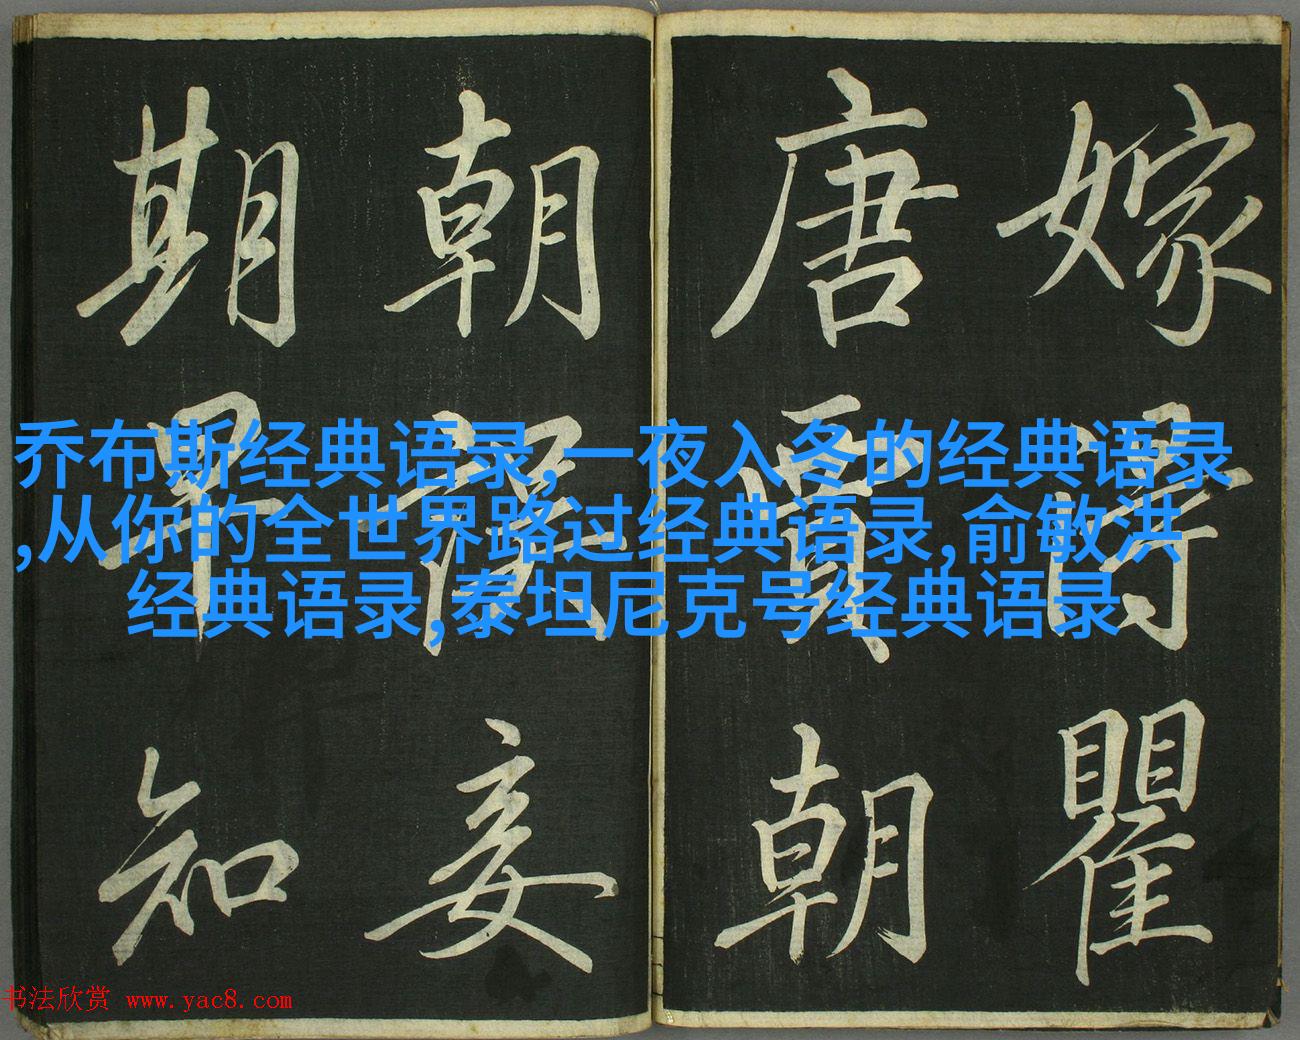 嫁得瞿
唐賈朝
朝誤妾
期早知
乔布斯经典语录,一夜入冬的经典语录
,从你的全世界路过经典语录,俞敏洪
经典语录,泰坦尼克号经典语录
书法欣赏 www.yac8.com